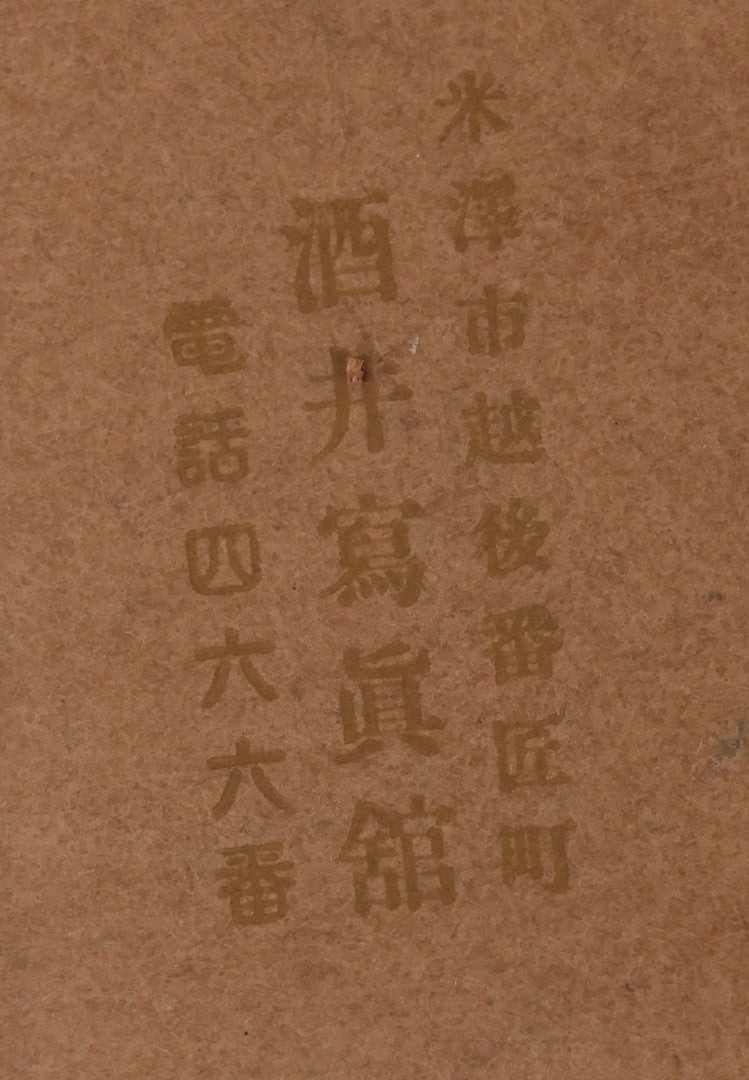 米澤市越後番匠町
酒井寫眞舘
電話四六六番